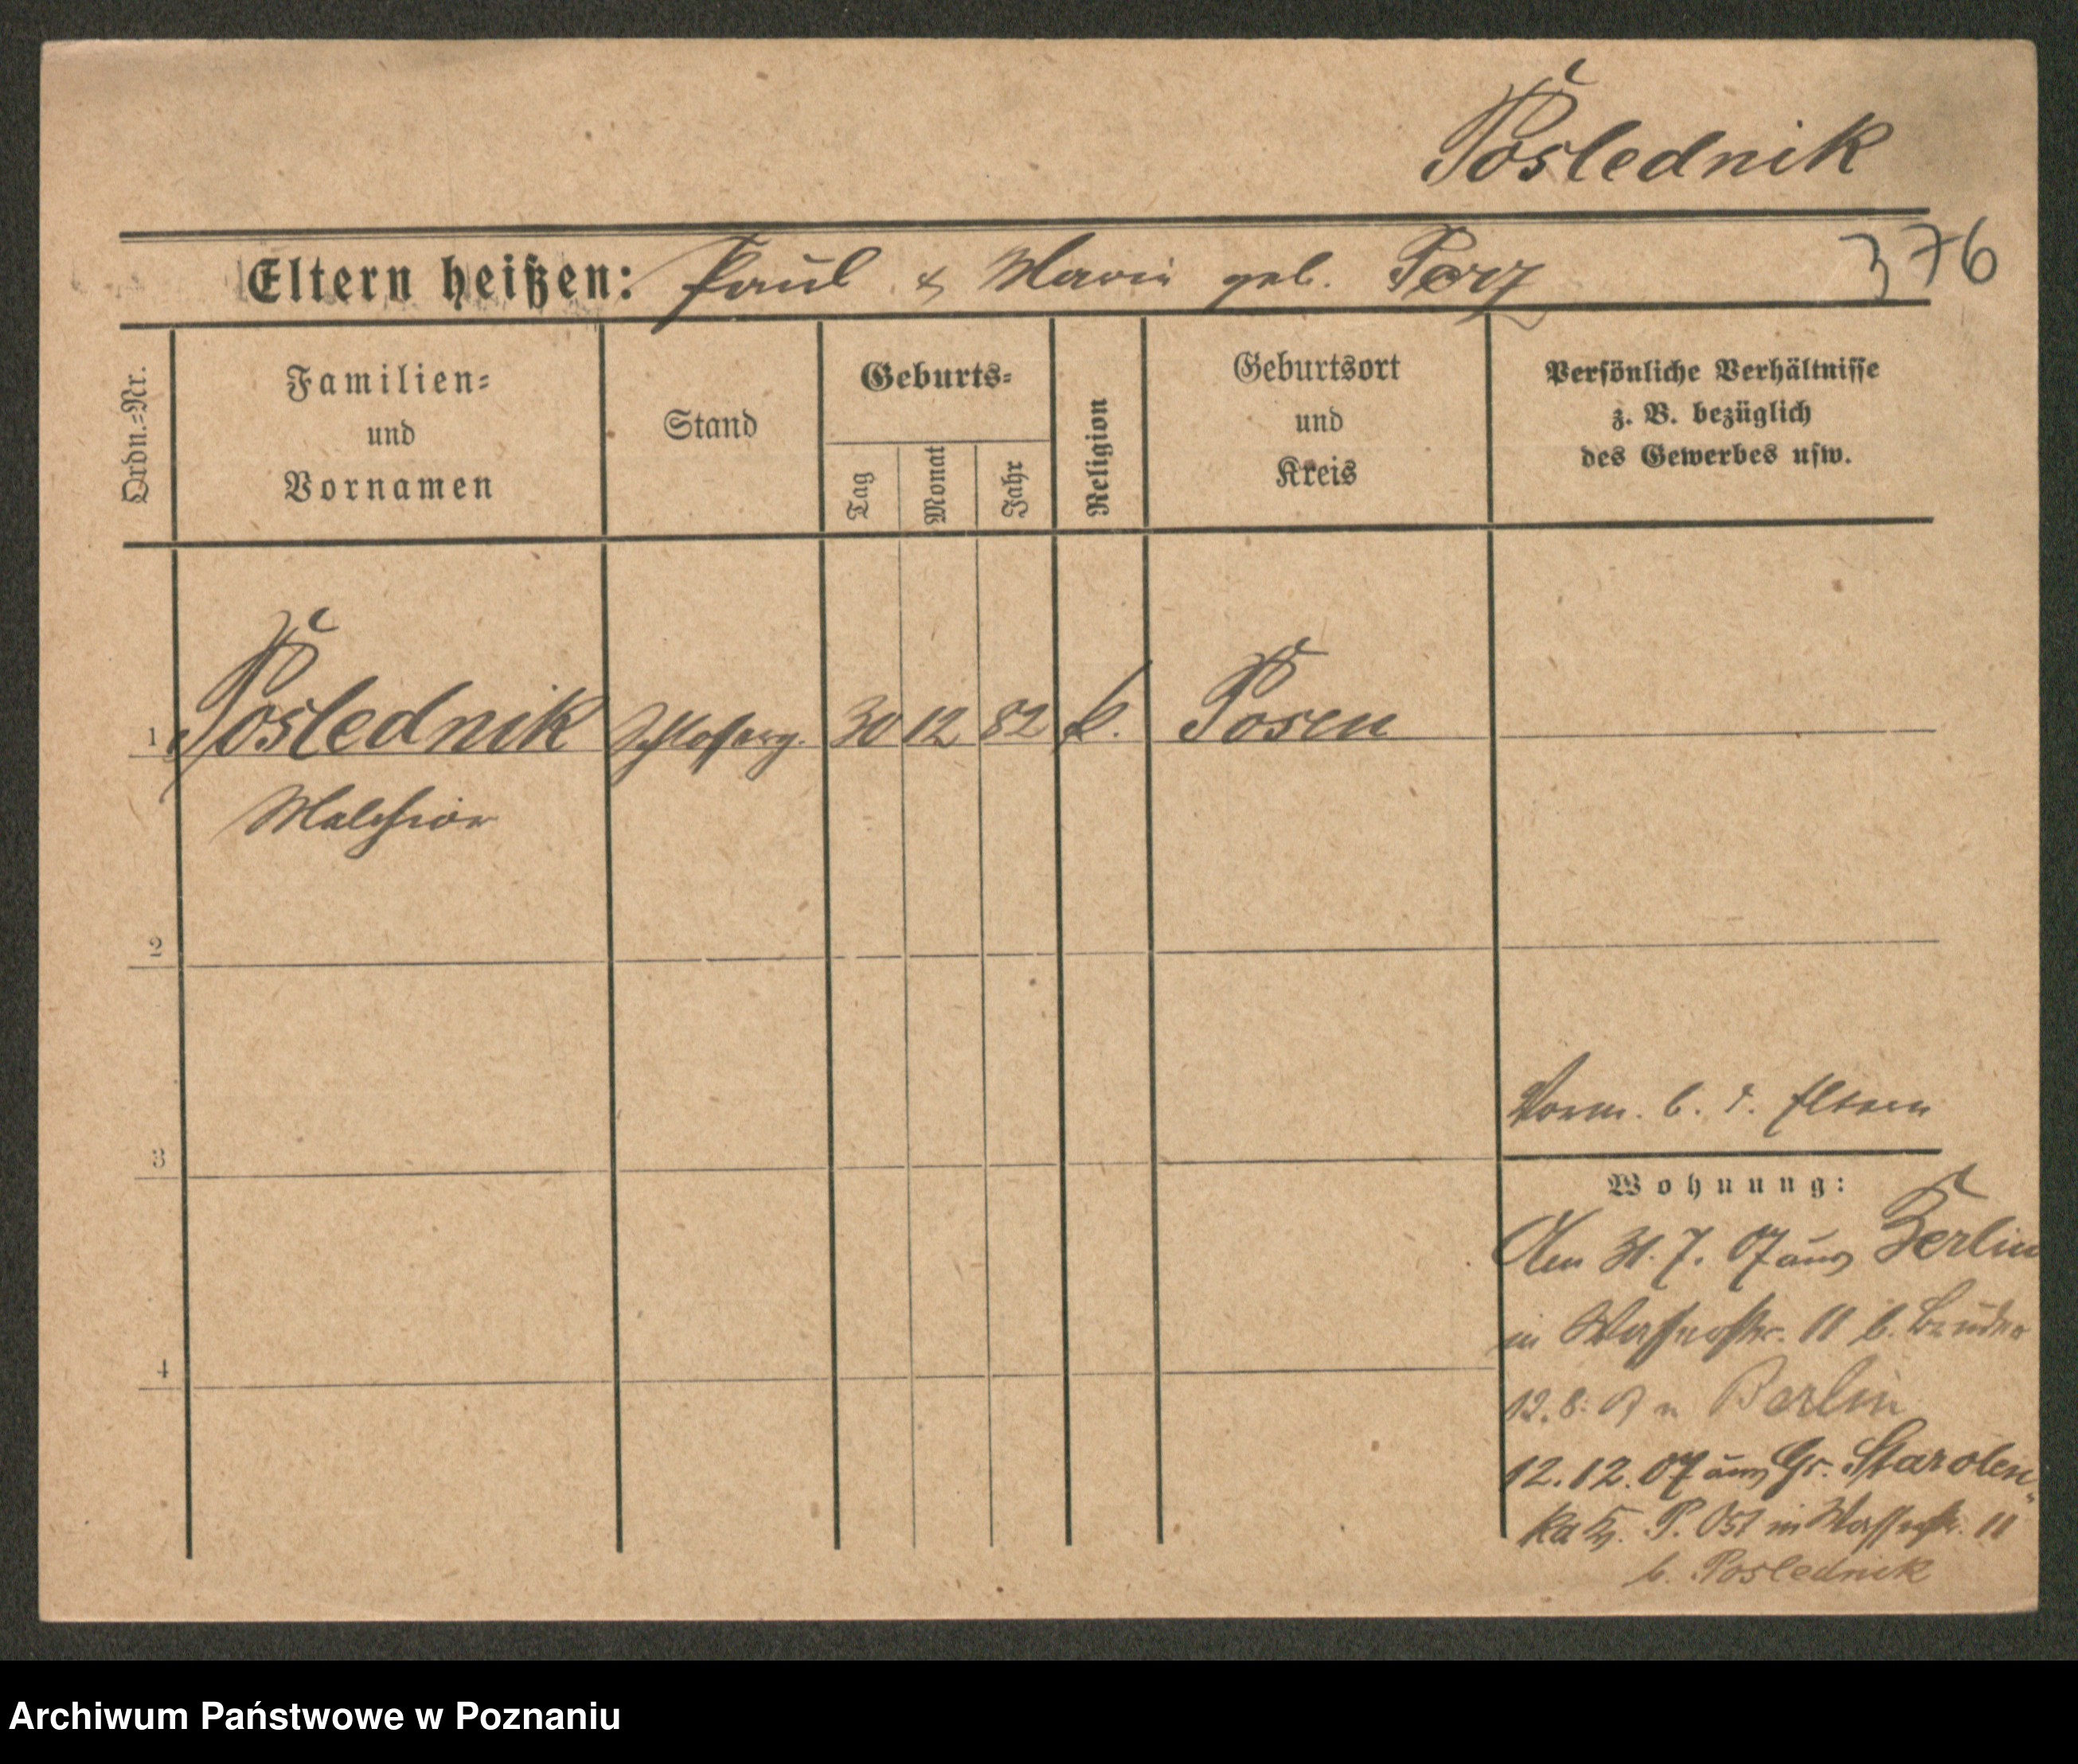 Poslednik
376
Eltern heißen: Paul & Marie geb. Perz
Ordn.=Nr.
Familien=
und
Vornamen
Stand
Geburts=
Tag
Monat
Jahr
Religion
Geburtsort
und
Kreis
Persönliche Verhältnisse
z. B. bezüglich
des Gewerbes usw.
1 Poslednik Schlosserg. 30 12 82 k. Posen
Melchior
2
3
4
Vorm. b. d. Eltern
Wohnung:
Am 31. 7. 07 aus Berlin
in Wasserstr. 11 b. Bruder
12. 8. 07 n Berlin
12. 12. 07 aus Gr. Starolen„
ka P. Ost in Wasserstr. 11
b. Poslednik
Archiwum Państwowe w Poznaniu